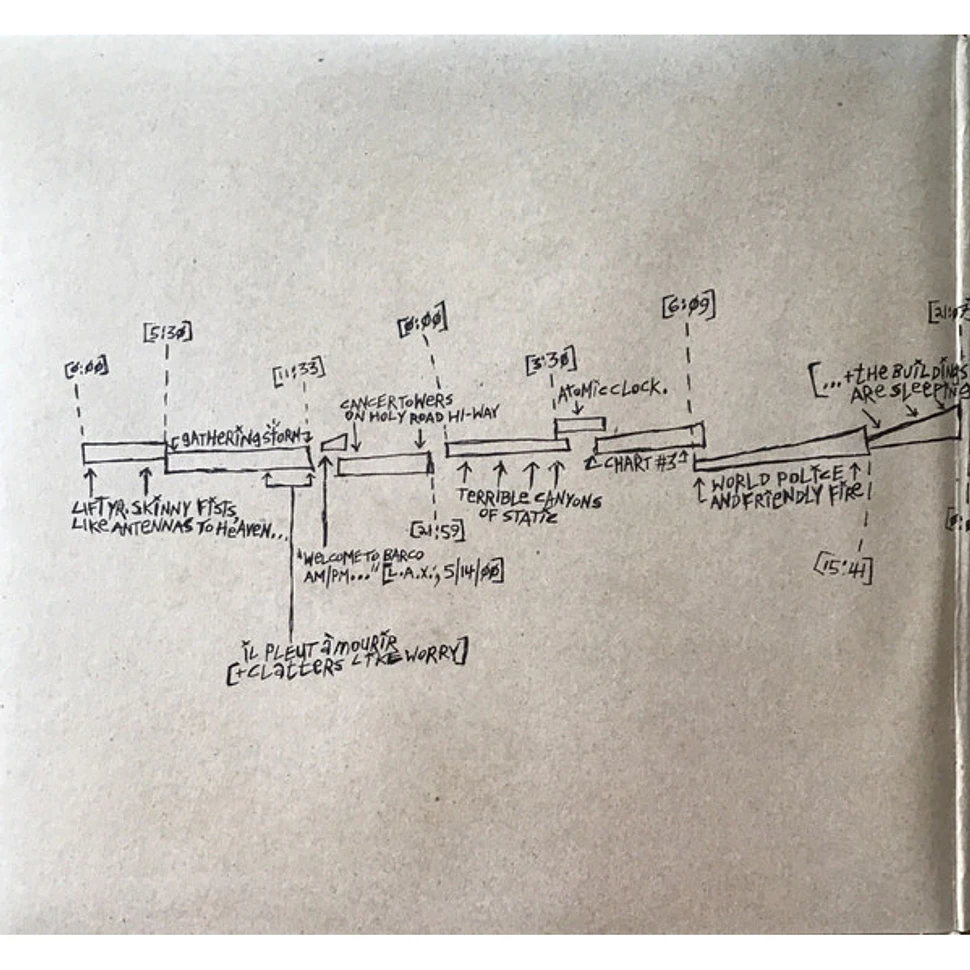 [0:00]
[5:30]
[11:33]
[0:00]
[3:30]
[6:09]
GATHERING STORM
CANCER TOWERS
ON HOLY ROAD HI-WAY
ATOMIC CLOCK.
[...+THE BUILDINGS
ARE SLEEPING
LIFT YR. SKINNY FISTS,
LIKE ANTENNAS TO HEAVEN...
TERRIBLE CANYONS
OF STATIC
CHART #3
WORLD POLICE
AND FRIENDLY FIRE
[21:59]
"WELCOME TO BARCO
AM/PM..." [L.A.X.; 5/14/00]
[15:41]
IL PLEUT À MOURIR
[+CLATTERS LIKE WORRY]